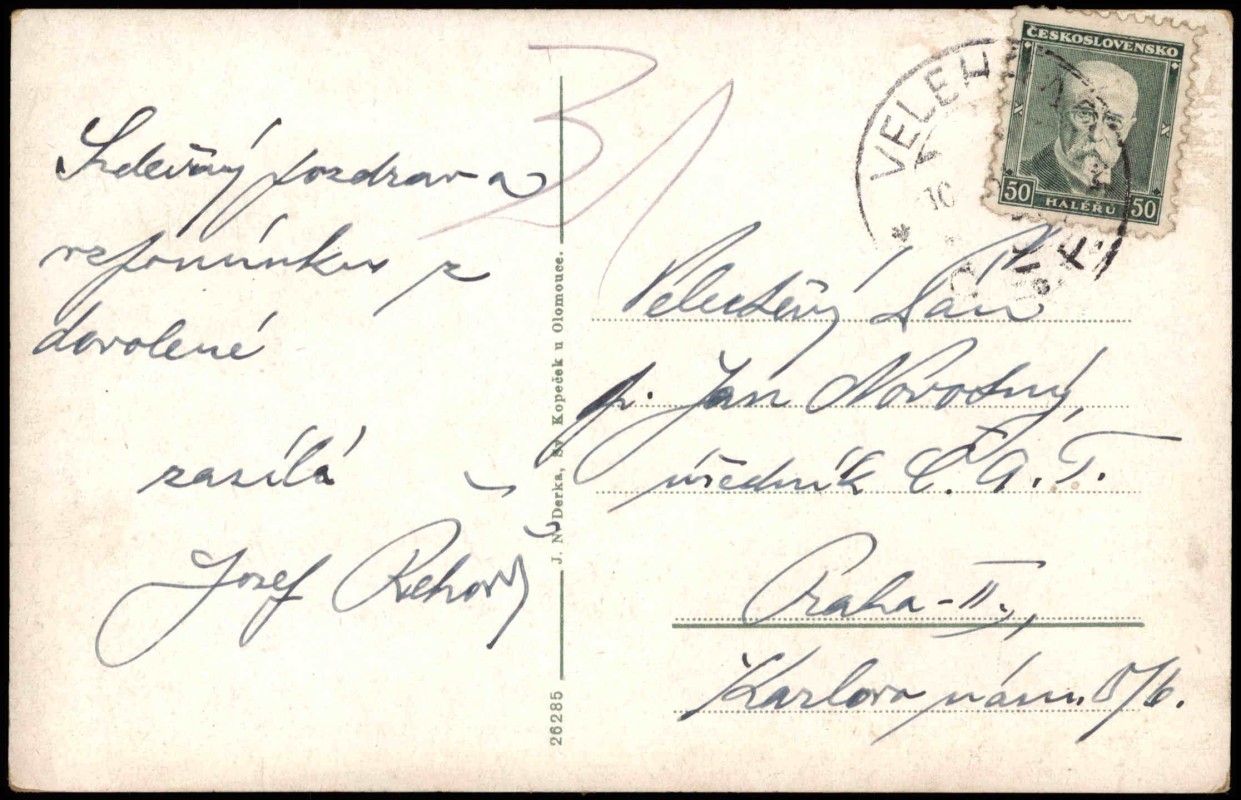 Srdečný pozdrav a
vzpomínku z
dovolené
zasílá
Josef Řehoř
J. N. Derka, Sv. Kopeček u Olomouce.
26285
ČESKOSLOVENSKO
50 HALÉŘŮ 50
VELEH
10
Veletěný Pán
p. Jan Novotný,
úředník Č. A. T.
Praha-II.,
Karlovo nám. 5/6.